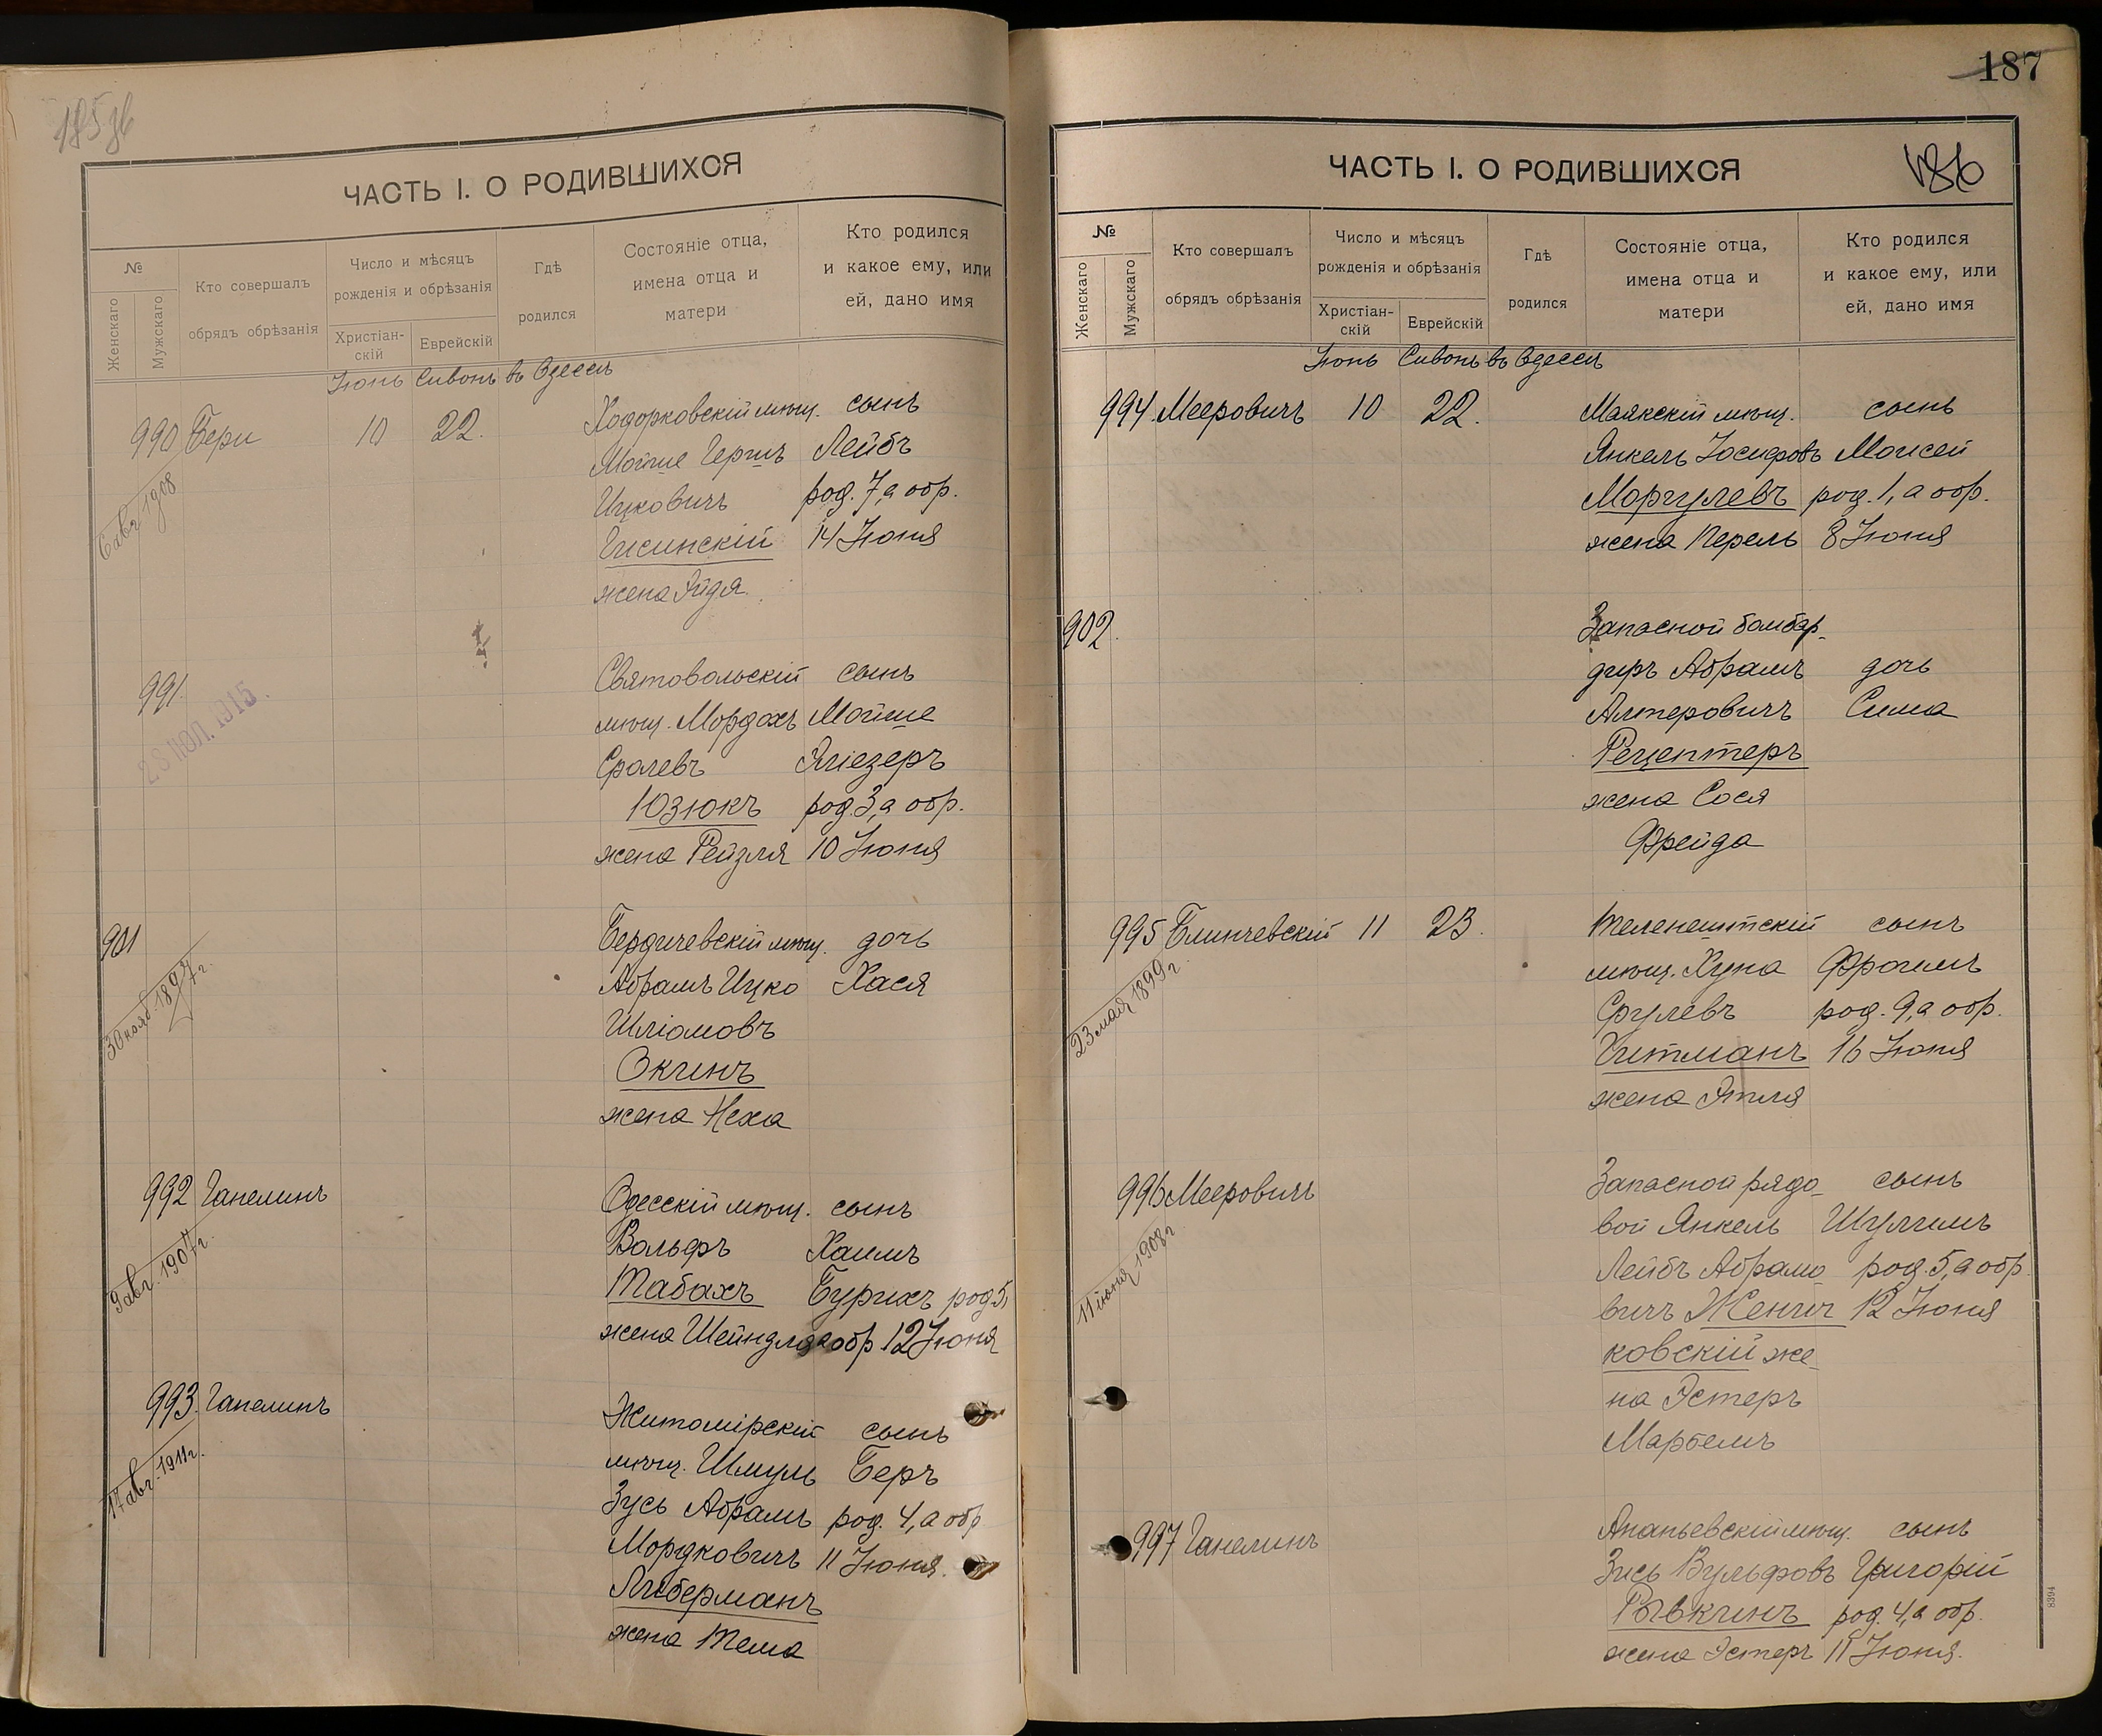 185 зв
ЧАСТЬ I. О РОДИВШИХСЯ
№
Женскаго
Мужскаго
Кто совершалъ
обрядъ обрѣзанія
Число и мѣсяцъ
рожденія и обрѣзанія
Христіан-
скій
Еврейскій
Гдѣ
родился
Состояніе отца,
имена отца и
матери
Кто родился
и какое ему, или
ей, дано имя
Іюнь Сивонъ въ Одессѣ
990 Бери 10 22. Ходорковскій мѣщ. сынъ
Мойше Гершъ Лейбъ
Ицковичъ род. 7, а обр.
Гисинскій 14 Іюня
жена Эйдя.
6 авг 1908
991. Святовольскій сынъ
мѣщ. Мордохъ Мойше
Сролевъ Эліезеръ
Юзюкъ род. 3, а обр.
жена Рейзля 10 Іюня
23 ІЮЛ. 1915.
901 Бердичевскій мѣщ. дочь
Абрамъ Ицко Хася
Шліомовъ
Окунь
жена Неха
30 нояб. 1897 г.
992 Ганелинъ Одесскій мѣщ. сынъ
Вольфъ Хаимъ
Табахъ Бурихъ род 5,
жена Шейндля а обр 12 Іюня
9 авг. 1907 г.
993. Ганелинъ Житомірскій сынъ
мѣщ. Шмуль Беръ
Зусь Абрамъ род. 4, а обр
Мордковичъ 11 Іюня.
Либерманъ
жена Тема
17 авг. 1911 г.
187
186
ЧАСТЬ I. О РОДИВШИХСЯ
№
Женскаго
Мужскаго
Кто совершалъ
обрядъ обрѣзанія
Число и мѣсяцъ
рожденія и обрѣзанія
Христіан-
скій
Еврейскій
Гдѣ
родился
Состояніе отца,
имена отца и
матери
Кто родился
и какое ему, или
ей, дано имя
Іюнь Сивонъ въ Одессѣ
994. Мееровичъ 10 22. Маякскій мѣщ. сынъ
Янкель Іосифовъ Моисей
Моргулевъ род. 1, а обр.
жена Перель 8 Іюня
902. Запасной бомбар-
диръ Абрамъ дочь
Алтеровичъ Сима
Рецептеръ
жена Сося
Фрейда
995 Блинчевскій 11 23. Теленештскій сынъ
мѣщ. Хуна Фроимъ
Срулевъ род. 9, а обр.
Гитманъ 16 Іюня
жена Этля
23 мая 1899 г.
996 Мееровичъ Запасной рядо- сынъ
вой Янкель Шулимъ
Лейбъ Абрамо- род. 5, а обр.
вичъ Женич 12 Іюня
ковскій же-
на Эстеръ
Марбемъ
11 іюня 1908 г
997 Ганелинъ Ананьевскій мѣщ. сынъ
Зись Вульфовъ Григорій
Рывкинъ род. 4, а обр.
жена Эстеръ 11 Іюня.
8394